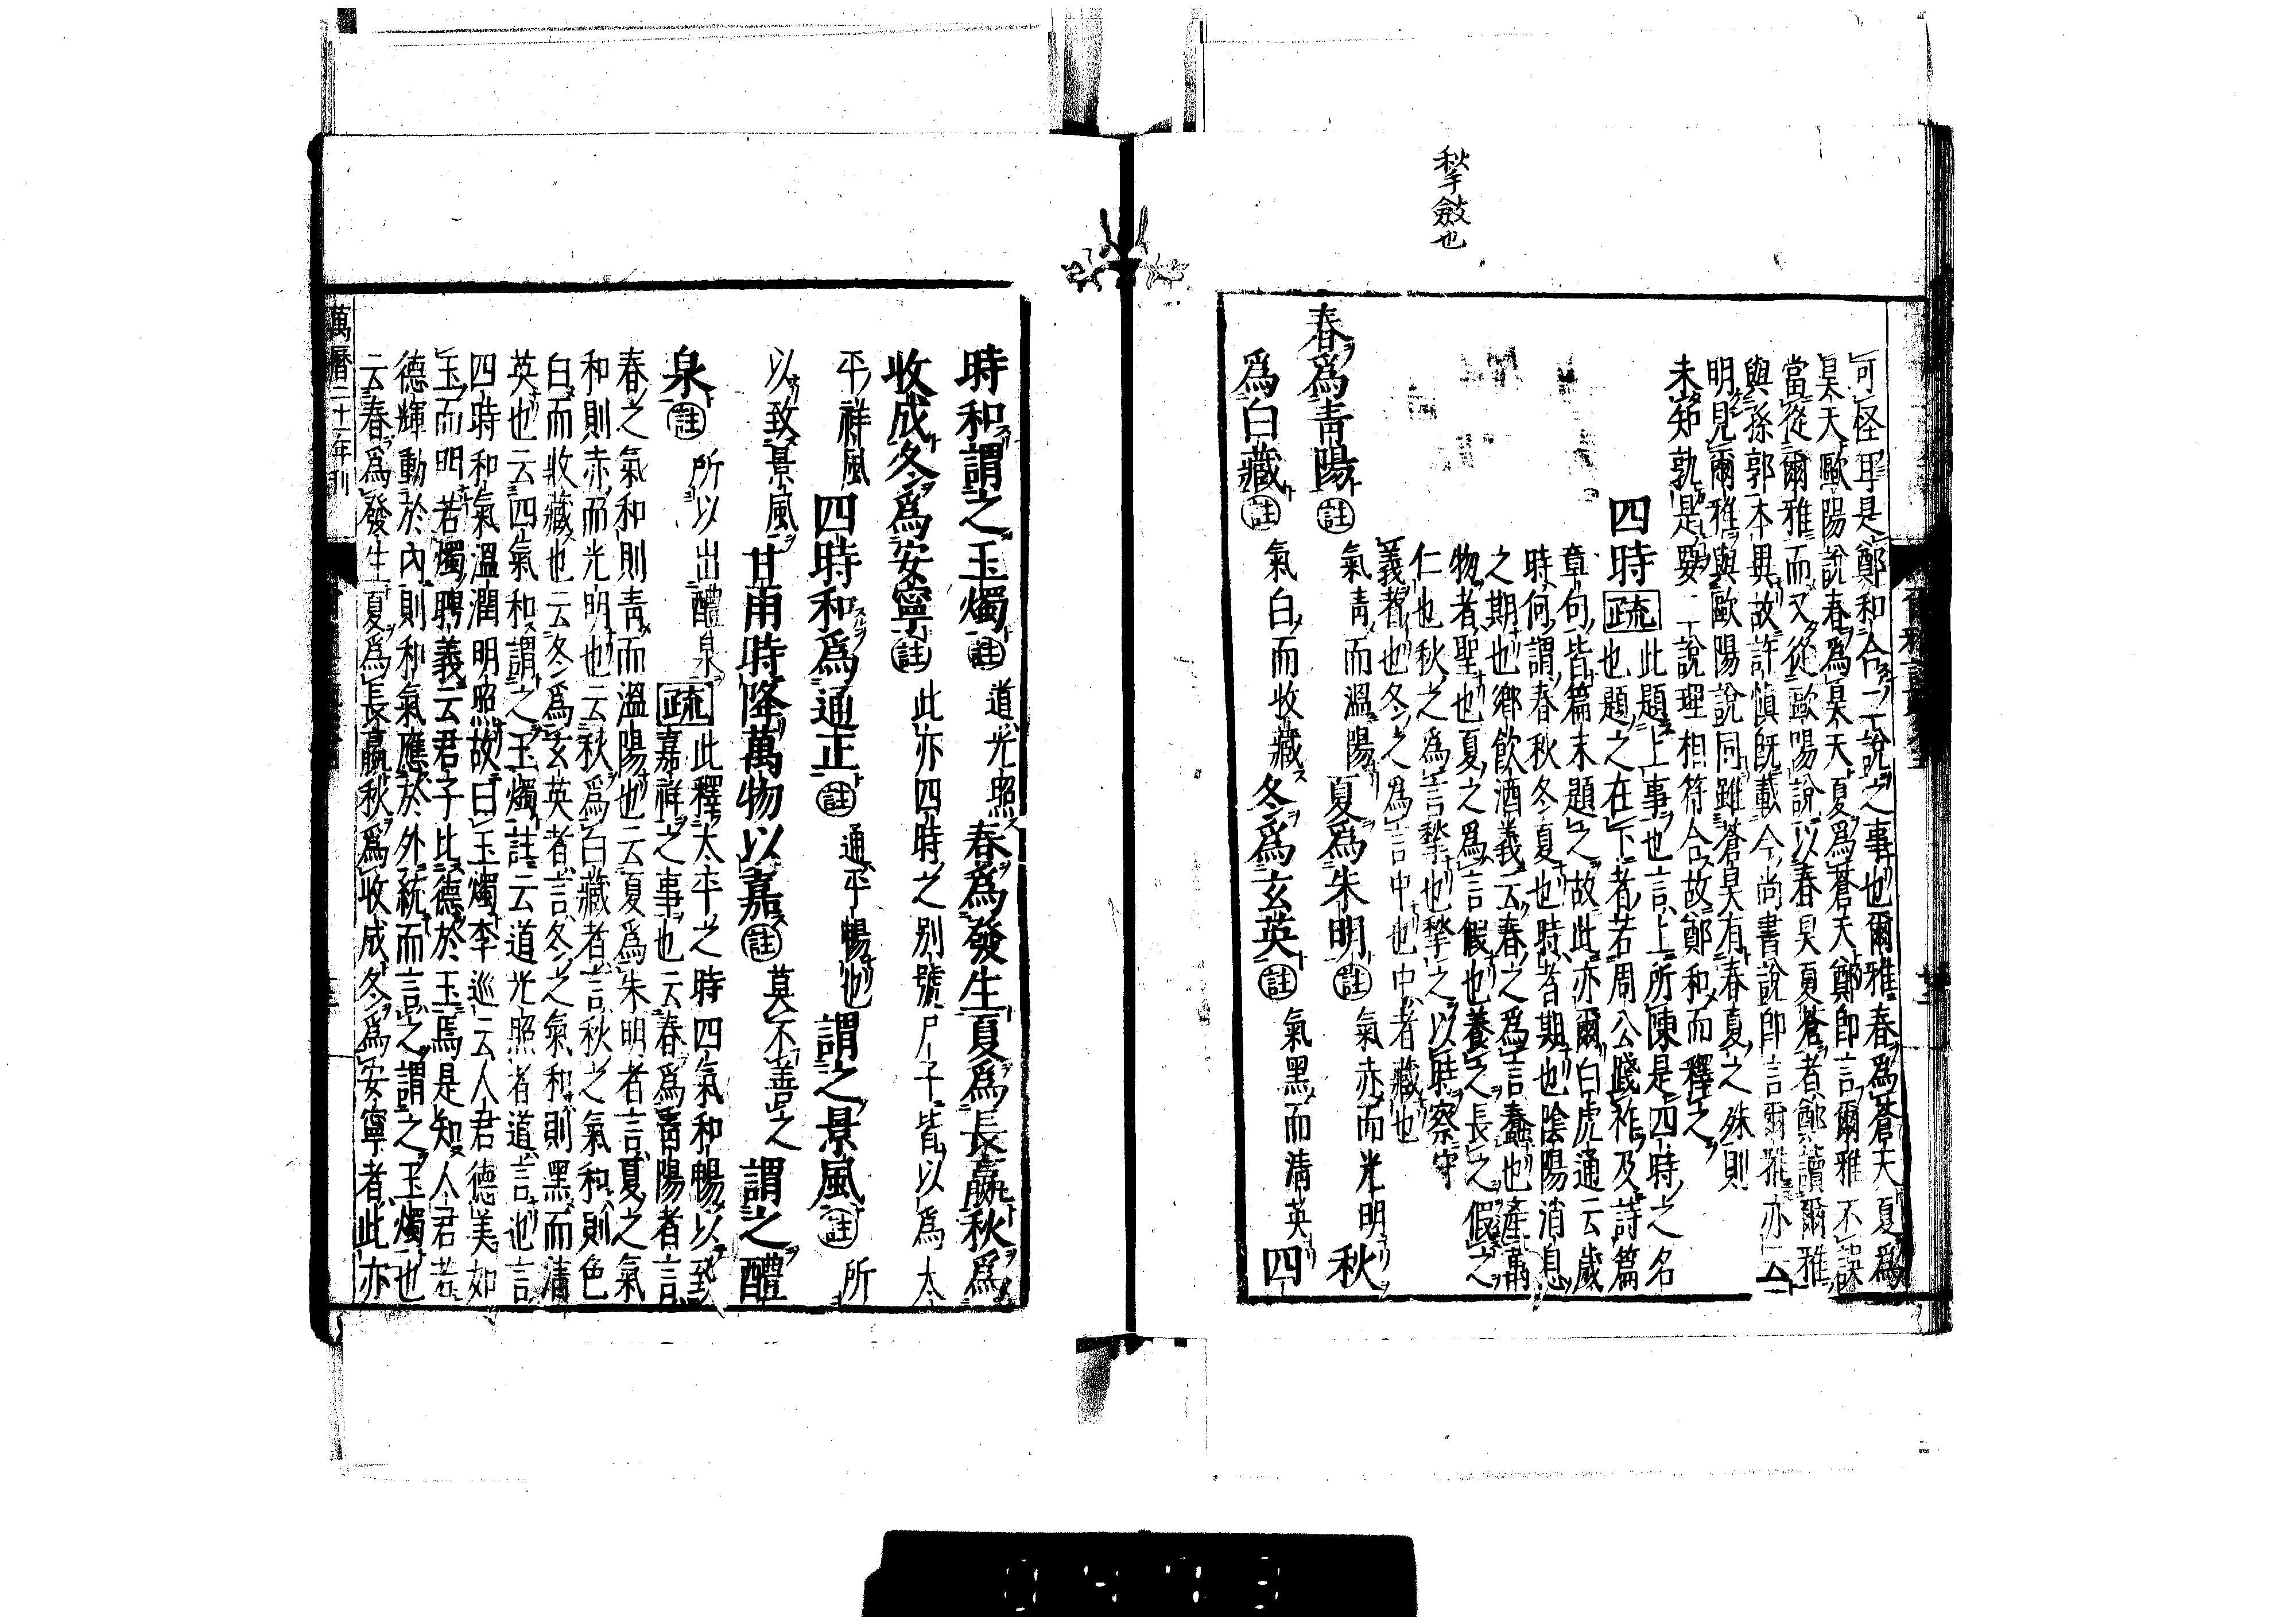 揫斂也
可怪耳是鄭和合二說之事也爾雅春爲蒼天夏爲
昊天歐陽說春爲昊天夏爲蒼天鄭卽言爾雅不誤
當從爾雅而又從歐陽說以春昊夏蒼者鄭讀爾雅
與孫郭本異故許愼旣載今尚書說卽言爾雅亦云
明見爾雅與歐陽說同雖蒼昊有春夏之殊則
未知孰是要二說理相符合故鄭和而釋之
四時疏此題上事也言上所陳是四時之名
也題之在下者若周公踐祚及詩篇
章句皆篇末題之故此亦爾白虎通云歲
時何謂春秋冬夏也時者期也陰陽消息
之期也鄉飲酒義云春之爲言蠢也產萬
物者聖也夏之爲言假也養之長之假之
仁也秋之爲言揫也揫之以時察守
義者也冬之爲言中也中者藏也
春爲靑陽註氣靑而溫陽夏爲朱明註氣赤而光明秋
爲白藏註氣白而收藏冬爲玄英註氣黑而淸英四
時和謂之玉燭註道光照春爲發生夏爲長贏秋爲
收成冬爲安寧註此亦四時之別號尸子皆以爲太
平祥風四時和爲通正註通平暢也謂之景風註所
以致景風甘雨時降萬物以嘉註莫不善之謂之醴
泉註所以出醴泉疏此釋太平之時四氣和暢以致
嘉祥之事也云春爲靑陽者言
春之氣和則靑而溫陽也云夏爲朱明者言夏之氣
和則赤而光明也云秋爲白藏者言秋之氣和則色
白而收藏也云冬爲玄英者言冬之氣和則黑而淸
英也云四氣和謂之玉燭註云道光照者道言也言
四時和氣溫潤明照故曰玉燭李巡云人君德美如
玉而明若燭聘義云君子比德於玉焉是知人君若
德輝動於內則和氣應於外統而言之謂之玉燭也
云春爲發生夏爲長贏秋爲收成冬爲安寧者此亦
萬曆二十一年刊